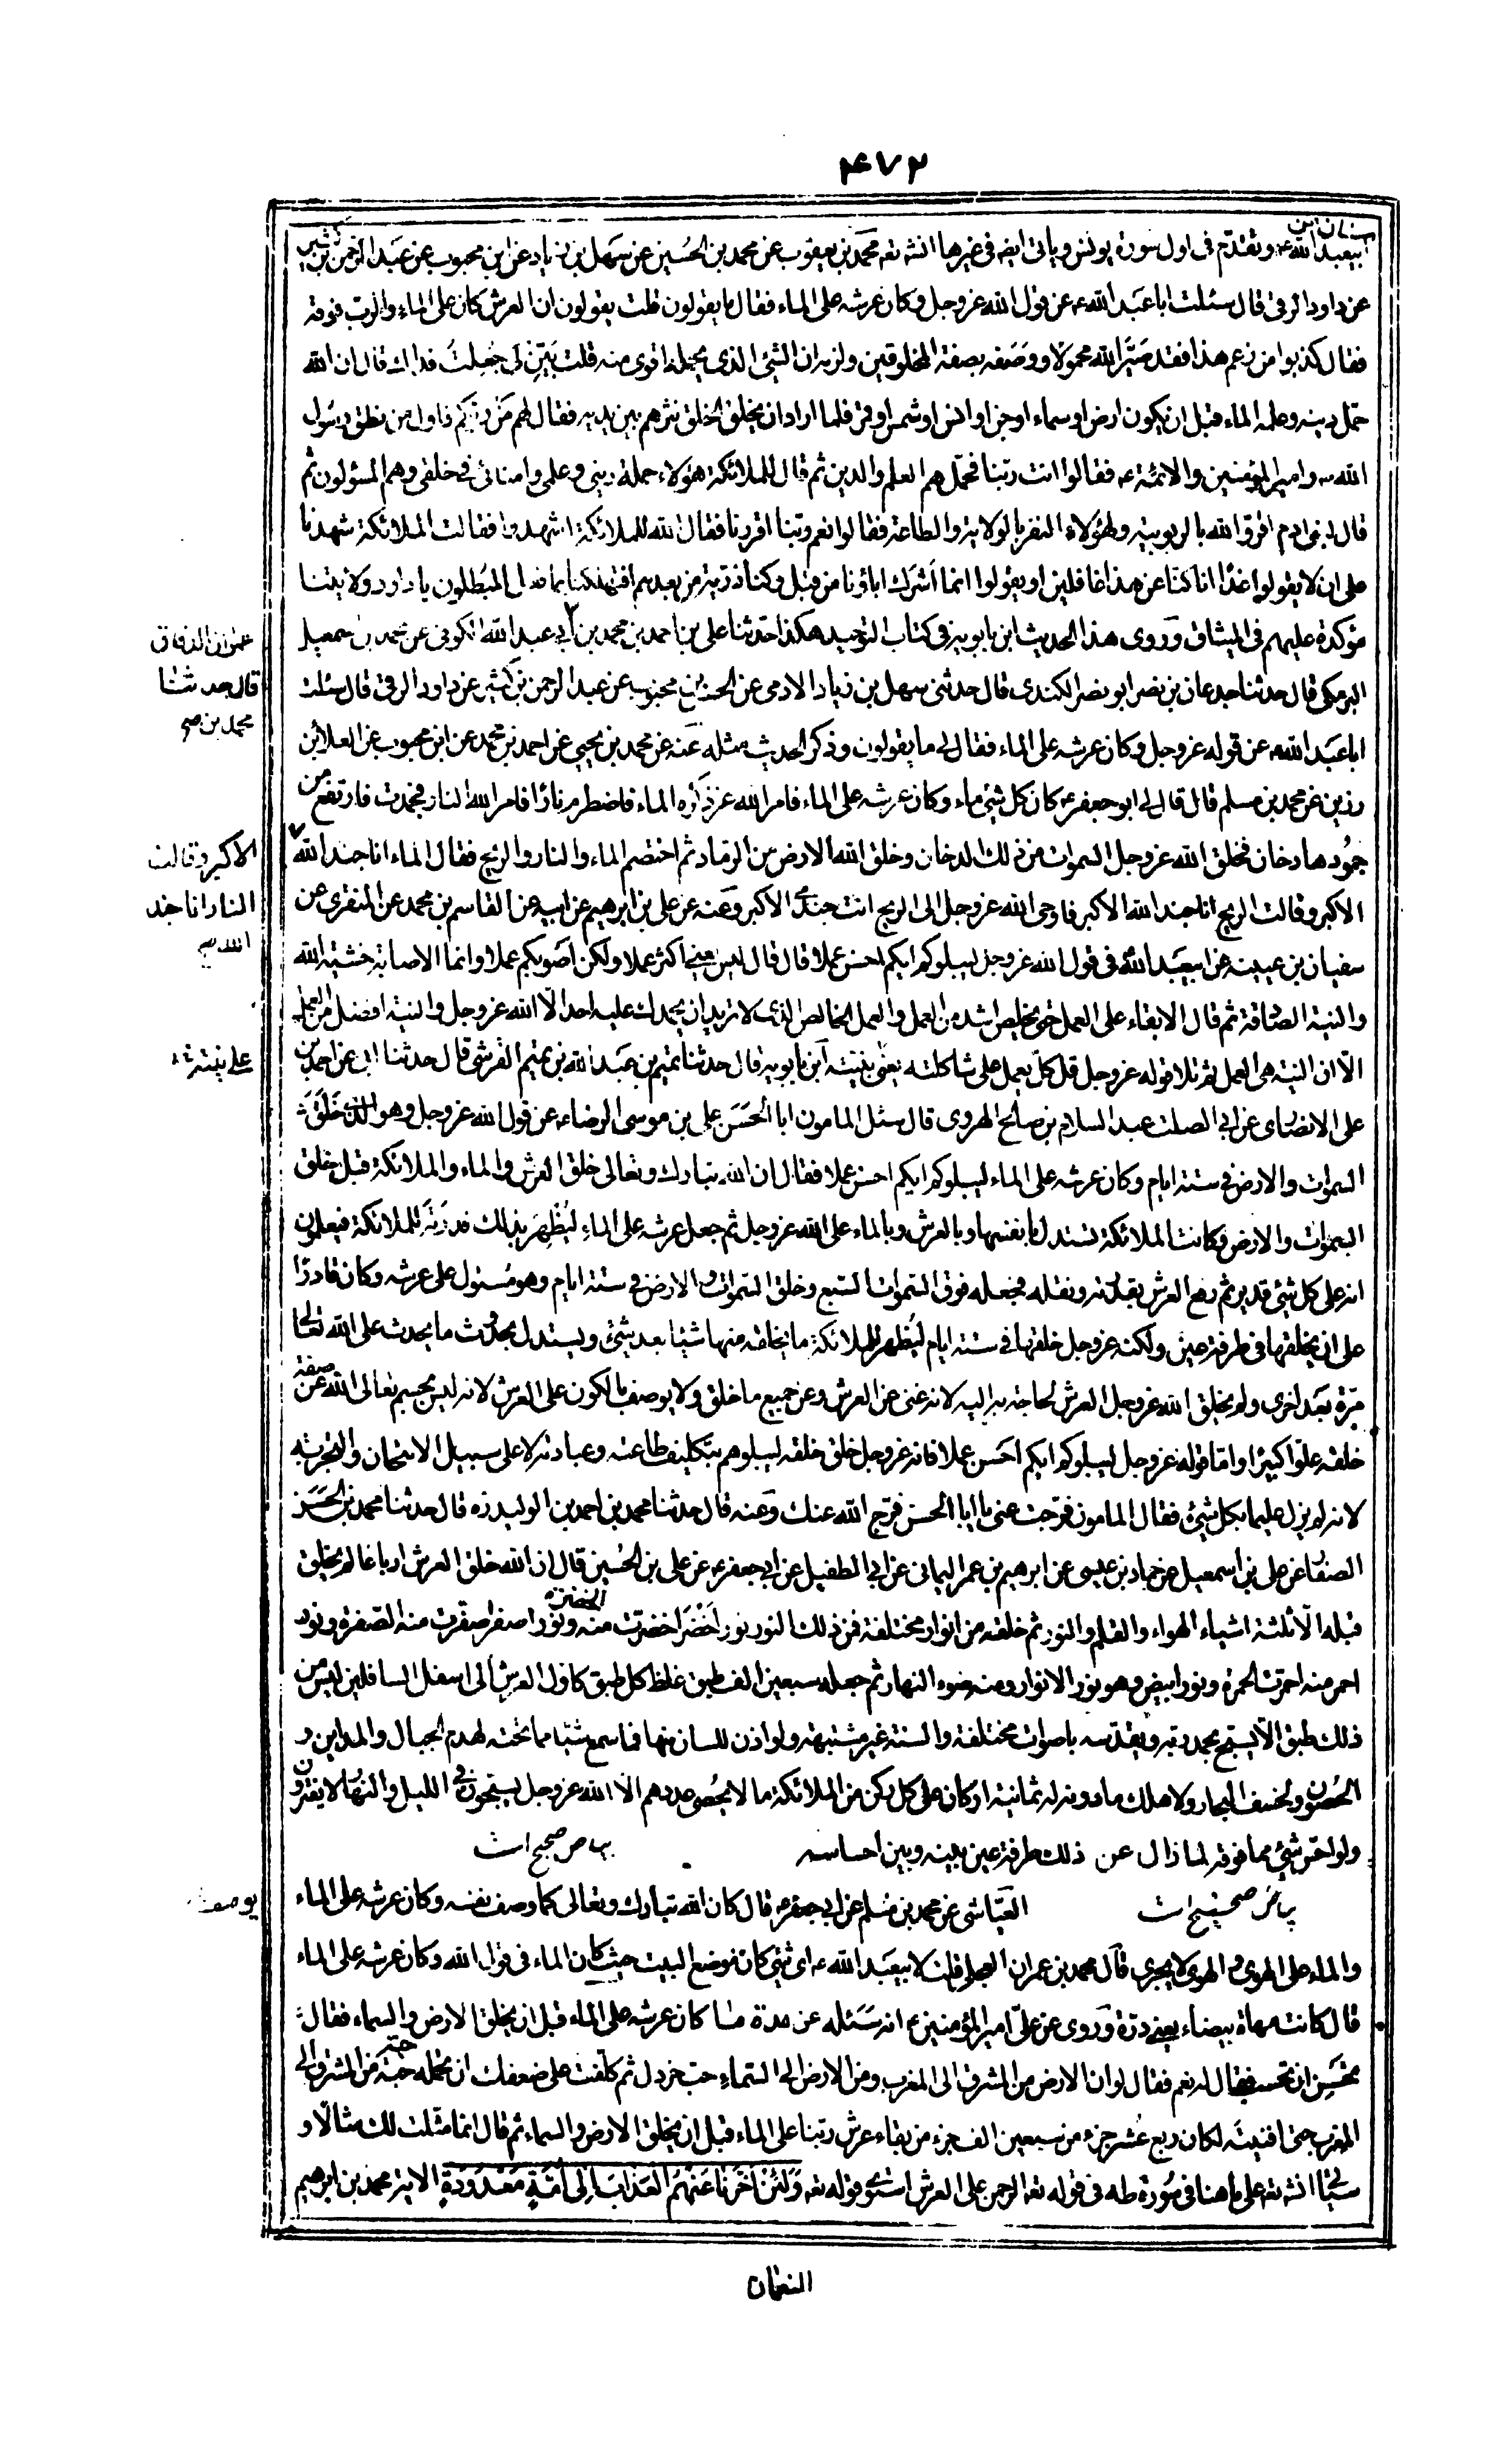 ٤٧٢
سنان ابن
ابيعبد الله ع وتقدم فى اول سورة يونس وياتى ايض فى غيرها انشه تعه محمد بن يعقوب عن محمد بن الحسين عن سهل بن زياد عن ابن محبوب عن عبد الرحمن بن كثير
عن داود الرقى قال سئلت ابا عبد الله ع عن قول الله عز وجل وكان عرشه على الماء فقال ما يقولون قلت يقولون ان العرش كان على الماء والرب فوقه
فقال كذبوا من زعم هذا فقد صيّر الله محمولا ووصفه بصفة المخلوقين ولزمه ان الشئ الذى يحمله اقوى منه قلت بيّن لى جعلت فداك قال ان الله
حمّل دينه وعلمه الماء قبل ان يكون ارض او سماء او جن او انس او شمس او قمر فلما اراد ان يخلق الخلق نثرهم بين يديه فقال لهم من ربكم فاول من نطق رسول
الله ص وامير المؤمنين والائمة ع فقالوا انت ربنا فحمّلهم العلم والدين ثم قال للملائكة هؤلاء حملة دينى وعلمى وامنائى فى خلقى وهم المسئولون ثم
قال لبنى ادم اقرّوا لله بالربوبية ولهؤلاء النفر بالولاية والطاعة فقالوا نعم ربنا اقررنا فقال الله للملائكة اشهدوا فقالت الملائكة شهدنا
على ان لا يقولوا غدًا انا كنّا عن هذا غافلين او يقولوا انما اشرك اباؤنا من قبل وكنا ذرّية من بعدهم افتهلكنا بما فعل المبطلون يا داود ولايتنا
مؤكدة عليهم فى الميثاق وروى هذا الحديث ابن بابويه فى كتاب التوحيد هكذا حدّثنا على بن احمد بن محمد بن ابى عبد الله الكوفى عن محمد بن اسمعيل
عمران الدقاق
قال حدثنا
محمد بن صح
البرمكى قال حدثنا جدعان بن نصر ابو نصر الكندى قال حدثنى سهل بن زياد الادمى عن الحسن بن محبوب عن عبد الرحمن بن كثير عن داود الرقى قال سئلت
ابا عبد الله ع عن قوله عز وجل وكان عرشه على الماء فقال لى ما يقولون وذكر الحديث مثله عنه عن محمد بن يحيى عن احمد بن محمد عن ابن محبوب عن العلا بن
رزين عن محمد بن مسلم قال قال لى ابو جعفر ع كان كل شئ ماء وكان عرشه على الماء فامر الله عز ذكره الماء فاضطرم نارًا فامر الله النار فخمدت فارتفع من
خمودها دخان فخلق الله عز وجل السموات من ذلك الدخان وخلق الله الارض من الرماد ثم اختصم الماء والنار والريح فقال الماء انا جند الله
الاكبر وقالت
النار انا جند
الله صح
الاكبر وقالت الريح انا جند الله الاكبر فاوحى الله عز وجل الى الريح انت جندى الاكبر وعنه عن على بن ابرهيم عن ابيه عن القاسم بن محمد عن المنقرى عن
سفيان بن عيينة عن ابيعبد الله فى قول الله عز وجل ليبلوكم ايكم احسن عملا قال قال ليس يعنى اكثر عملا ولكن اصوبكم عملا وانما الاصابة خشية الله
والنية الصادقة ثم قال الابقاء على العمل حتى يخلص اشد من العمل والعمل الخالص الذى لا تريد ان يحمدك عليه احد الّا الله عز وجل والنية افضل من العمل
الّا ان النية هى العمل ثم تلا قوله عز وجل قل كلّ يعمل على شاكلته يعنى بنيته ابن بابويه قال حدثنا تميم بن عبد الله بن تميم القرشى قال حدثنا ابى عن احمد بن
على الانصارى عن ابى الصلت عبد السلام بن صالح الهروى قال سئل المامون ابا الحسن على بن موسى الرضاء ع عن قول الله عز وجل وهو الذى خلق
السموات والارض فى ستة ايام وكان عرشه على الماء ليبلوكم ايكم احسن عملا فقال ان الله تبارك وتعالى خلق العرش والماء والملائكة قبل خلق
السموات والارض وكانت الملائكة تستدل بانفسها وبالعرش وبالماء على الله عز وجل ثم جعل عرشه على الماء ليُظهر بذلك قدرته للملائكة فيعلمون
انه على كل شئ قدير ثم رفع العرش بقدرته ونقله فجعله فوق السموات السبع وخلق السموات والارض فى ستة ايام وهو مستول على عرشه وكان قادرًا
على ان يخلقها فى طرفة عين ولكنه عز وجل خلقها فى ستة ايام ليُظهر للملائكة ما يخلقه منها شيئا بعد شئ ويستدل بحدوث ما يحدث على الله تعالى
مرّة بعد اخرى ولم يخلق الله عز وجل العرش لحاجة به اليه لانه غنى عن العرش وعن جميع ما خلق ولا يوصف بالكون على العرش لانه ليس بجسم تعالى الله عن صفة
خلقه علوّا كبيرًا واما قوله عز وجل ليبلوكم ايكم احسن عملا فانه عز وجل خلق خلقه ليبلوهم بتكليف طاعته وعبادته لا على سبيل الامتحان والتجربة
لانه لم يزل عليما بكل شئ فقال المامون فرّجت عنى يا ابا الحسن فرّج الله عنك وعنه قال حدثنا محمد بن احمد بن الوليد ره قال حدثنا محمد بن الحسن
الصفار عن على بن اسمعيل عن حماد بن عيسى عن ابرهيم بن عمر اليمانى عن ابى الطفيل عن ابى جعفر ع عن على بن الحسين قال ان الله خلق العرش ارباعا لم يخلق
قبله الّا ثلثة اشياء الهواء والقلم والنور ثم خلقه من انوار مختلفة فمن ذلك النور نور اخضر اخضرّت منه الخضرة ونور اصفر اصفرت منه الصفرة ونور
احمر منه احمرت الحمرة ونور ابيض وهو نور الانوار ومنه ضوء النهار ثم جعله سبعين الف طبق غلظ كل طبق كاول العرش الى اسفل السافلين ليس من
ذلك طبق الّا يسبّح بحمد ربه ويقدّسه باصوات مختلفة والسنة غير مشتبهة ولو اذن للسان منها فاسمع شيئا مما تحته لهدم الجبال والمداين و
الحصون ولخسف البحار ولاهلك ما دونه له ثمانية اركان على كل ركن من الملائكة ما لا يحصى عددهم الّا الله عز وجل يسبّحون فى الليل والنهار لا يفترون
ولو احسّ شئ مما فوقه لما زال عن ذلك طرفة عين بينه وبين احساسه
بياض صحيح است
بياض صحيح است
العيّاشى عن محمد بن مسلم عن ابى جعفر ع قال كان الله تبارك وتعالى كما وصف نفسه وكان عرشه على الماء
والماء على الهوى والهوى لا يجرى قال محمد بن عمران العجلى قلت لابيعبد الله ع اى شئ كان موضع البيت حيث كان الماء فى قول الله وكان عرشه على الماء
قال كانت مهاة بيضاء يعنى درّة وروى عن علىّ امير المؤمنين ع انه سئله عن مدة ما كان عرشه على الماء قبل ان يخلق الارض والسماء فقال
تحسن ان تحسب فقال له نعم فقال لو ان الارض من المشرق الى المغرب ومن الارض الى السماء حب خردل ثم كلّفت على ضعفك ان تحمله حبّة حبّة من المشرق الى
المغرب حتى افنيته لكان ربع عشر جزء من سبعين الف جزء من بقاء عرش ربنا على الماء قبل ان يخلق الارض والسماء ثم قال انما مثّلت لك مثالًا و
سيجئ انشه تعه على ما هنا فى سورة طه فى قوله تعه الرحمن على العرش استوى قوله تعه وَلَئِنْ اَخَّرْنَا عَنْهُمُ الْعَذَابَ اِلٰى اُمَّةٍ مَعْدُودَةٍ الاية محمد بن ابرهيم
النعمان